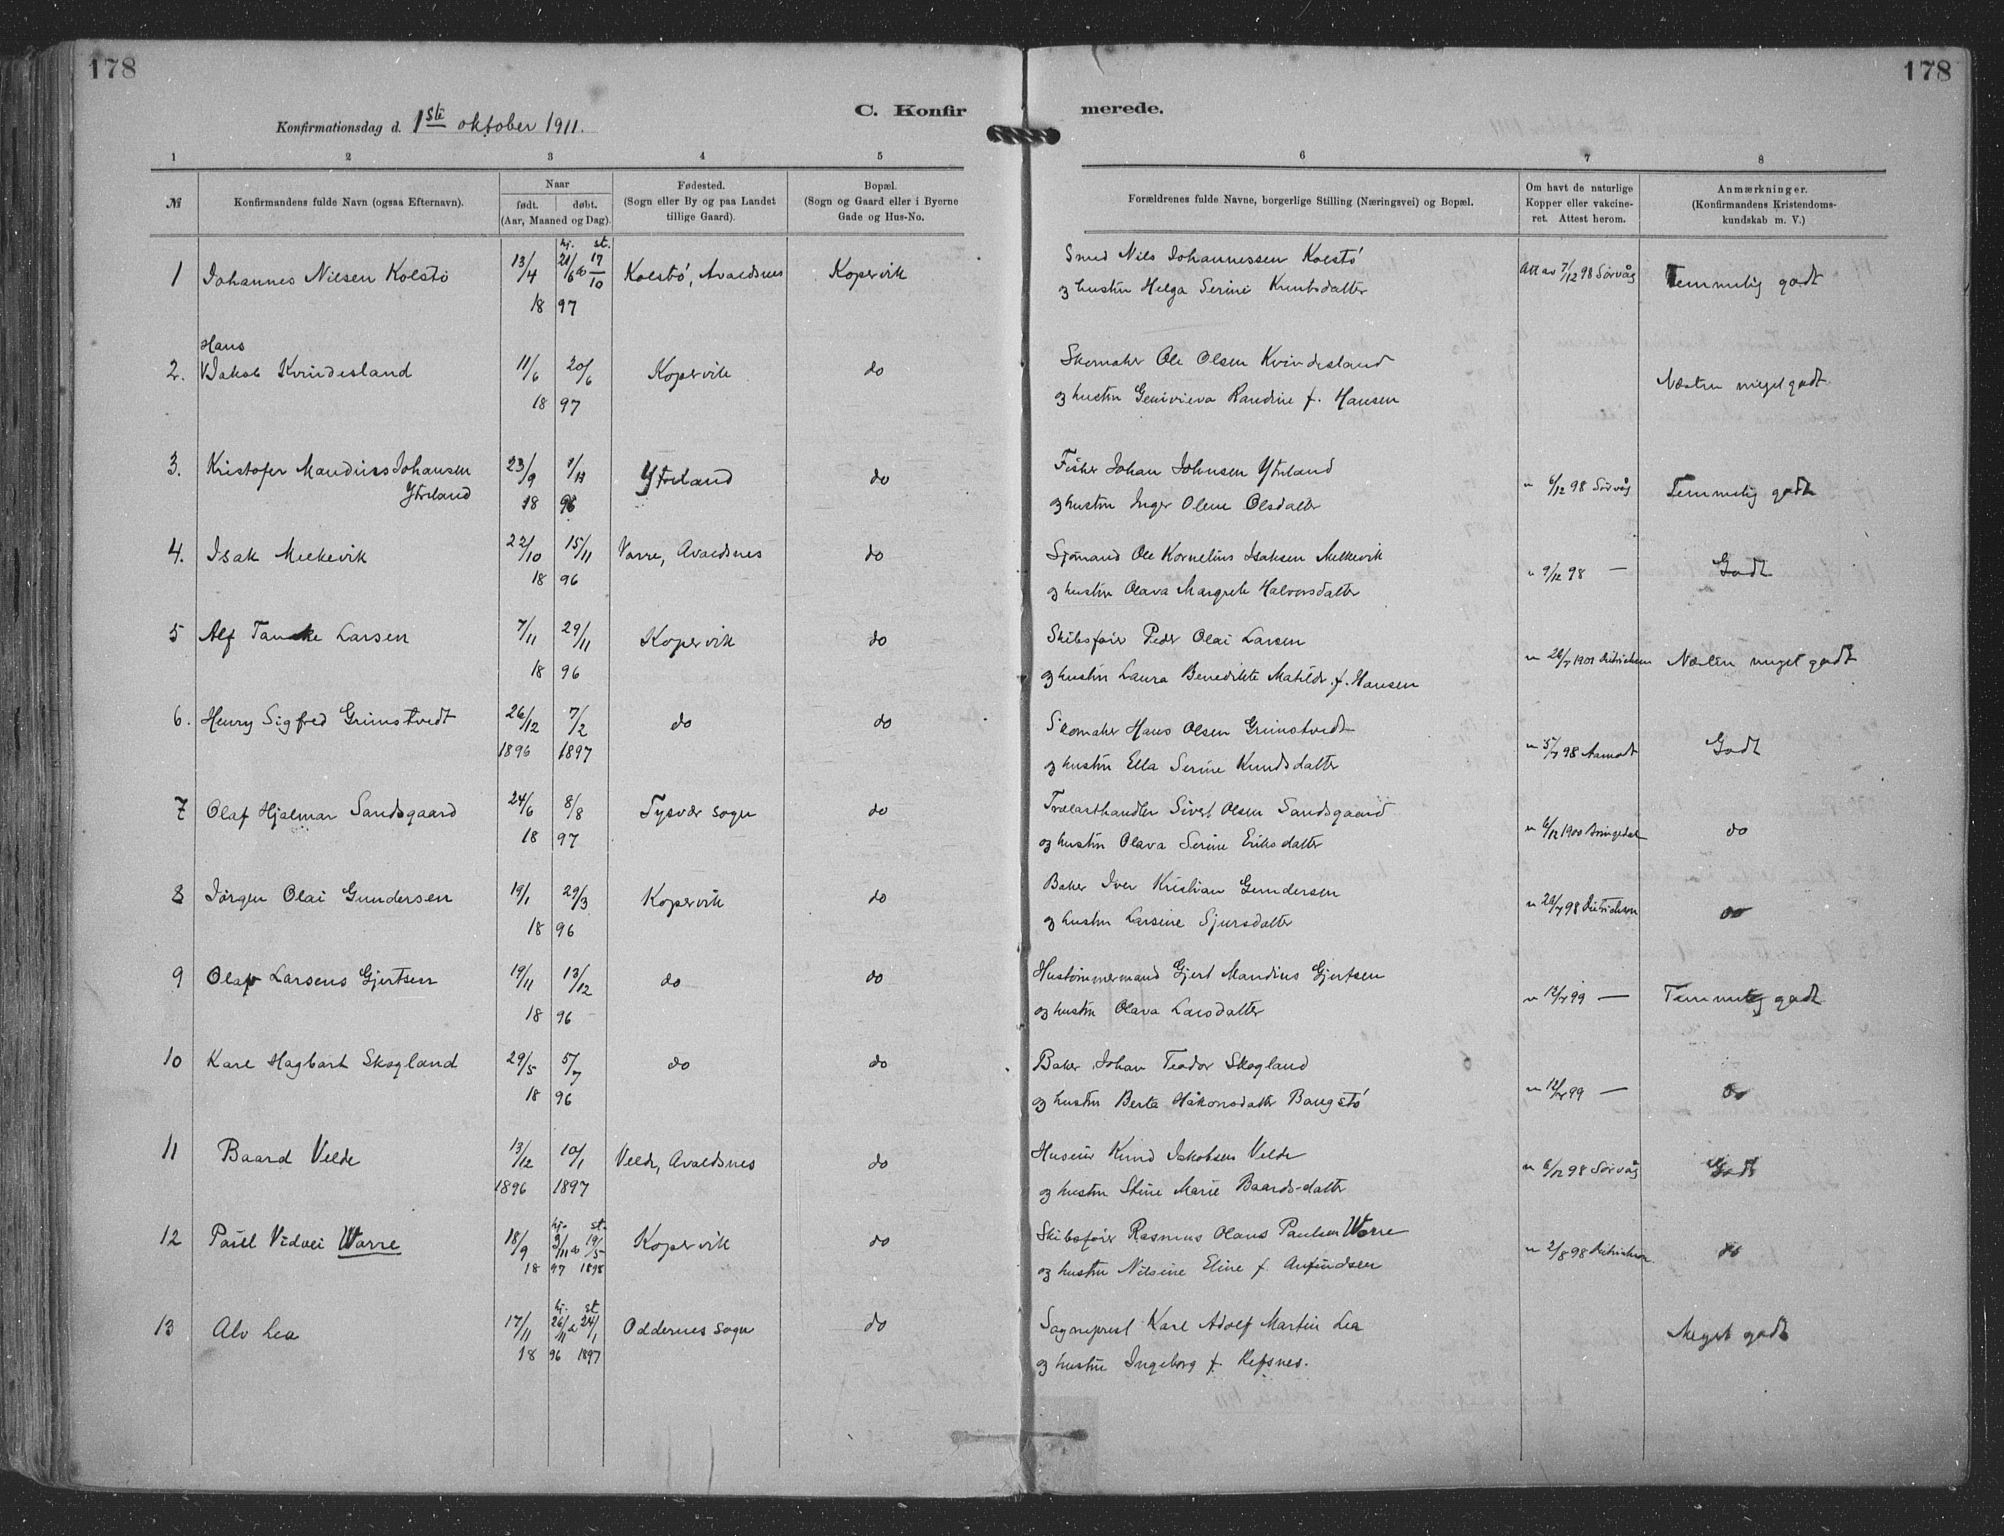 178
178
C. Konfir
merede.
Konfirmationsdag d. 1ste oktober 1911.
1 2 3 4 5 6 7 8
№
Konfirmandens fulde Navn (ogsaa Efternavn).
Naar
født. døbt.
(Aar, Maaned og Dag).
Fødested.
(Sogn eller By og paa Landet
tillige Gaard).
Bopæl.
(Sogn og Gaard eller i Byerne
Gade og Hus-No.
Forældrenes fulde Navne, borgerlige Stilling (Næringsvei) og Bopæl.
Om havt de naturlige
Kopper eller vakcine-
ret. Attest herom.
Anmærkninger.
(Konfirmandens Kristendoms-
kundskab m. V.)
hj. st.
1 Johannes Nilsen Kolstø 13/4 21/6 17/10 Kolstø, Avaldsnes Kopervik Smed Nils Johannessen Kolstø Att av 7/12 98 Sørvåg Temmelig godt
18 97 og hustru Helga Serine Knutsdatter
Hans
2. Jakob Kvindesland 11/6 20/6 Kopervik do Skomaker Ole Olsen Kvindesland Næsten meget godt
18 97 og hustru Genivieva Randine f. Hansen
3. Kristofer Mandius Johansen 23/9 Ytreland do Fisker Johan Johnsen Ytreland " 6/12 98 Sørvåg Temmelig godt
Ytreland 18 96 og hustru Inger Olene Olsdatter
4. Isak Melkevik 22/10 15/11 Varre, Avaldsnes do Sjømand Ole Kornelius Isaksen Melkevik " 9/12 98 — Godt
18 96 og hustru Olava Margrete Halvorsdatter
5 Alf Tanke Larsen 7/11 29/11 Kopervik do Skibsfører Peder Olai Larsen Næsten meget godt
18 96 og hustru Laura Benedikte Matilde f. Hansen
6. Henry Sigfred Grimstvedt 26/12 7/2 do do Skomaker Hans Olsen Grimstvedt Godt
1896 1897 og hustru Ella Serine Knudsdatter
7 Olaf Hjalmar Sandsgaard 24/6 8/8 Tysvær sogn do Trælasthandler Sivert Olsen Sandsgaard do
18 97 og hustru Olava Serine Eriksdatter
8 Jørgen Olai Gundersen 19/1 29/3 Kopervik do Baker Iver Kristian Gundersen do
18 96 og hustru Larsine Sjursdatter
9 Olaf Larsens Gjertsen 19/11 13/12 do do Hustømmermand Gjert Mandius Gjertsen Temmelig godt
18 96 og hustru Olava Larsdatter
10 Karl Hagbart Skogland 29/5 5/7 do do Baker Johan Teodor Skogland do
18 96 og hustru Berta Håkonsdatter Baugstø
11 Baard Velde 13/12 10/1 Velde, Avaldsnes do Huseier Knud Jakobsen Velde " 6/12 98 Sørvåg Godt
1896 1897 og hustru Stine Marie Baards-datter
hj. st.
12 Paul Vidvei Warre 18/9 19/5 Kopervik do Skibsfører Rasmus Olaus Paulsen Warre " 2/8 98 do
18 97 1898 og hustru Nilsine Eline f. Anfindsen
hj. st
13 Alv Lea 17/11 26/11 24/1 Oddernes sogn do Sogneprest Karl Adolf Martin Lea Meget godt
18 96 1897 og hustru Ingeborg f. Refsnes.